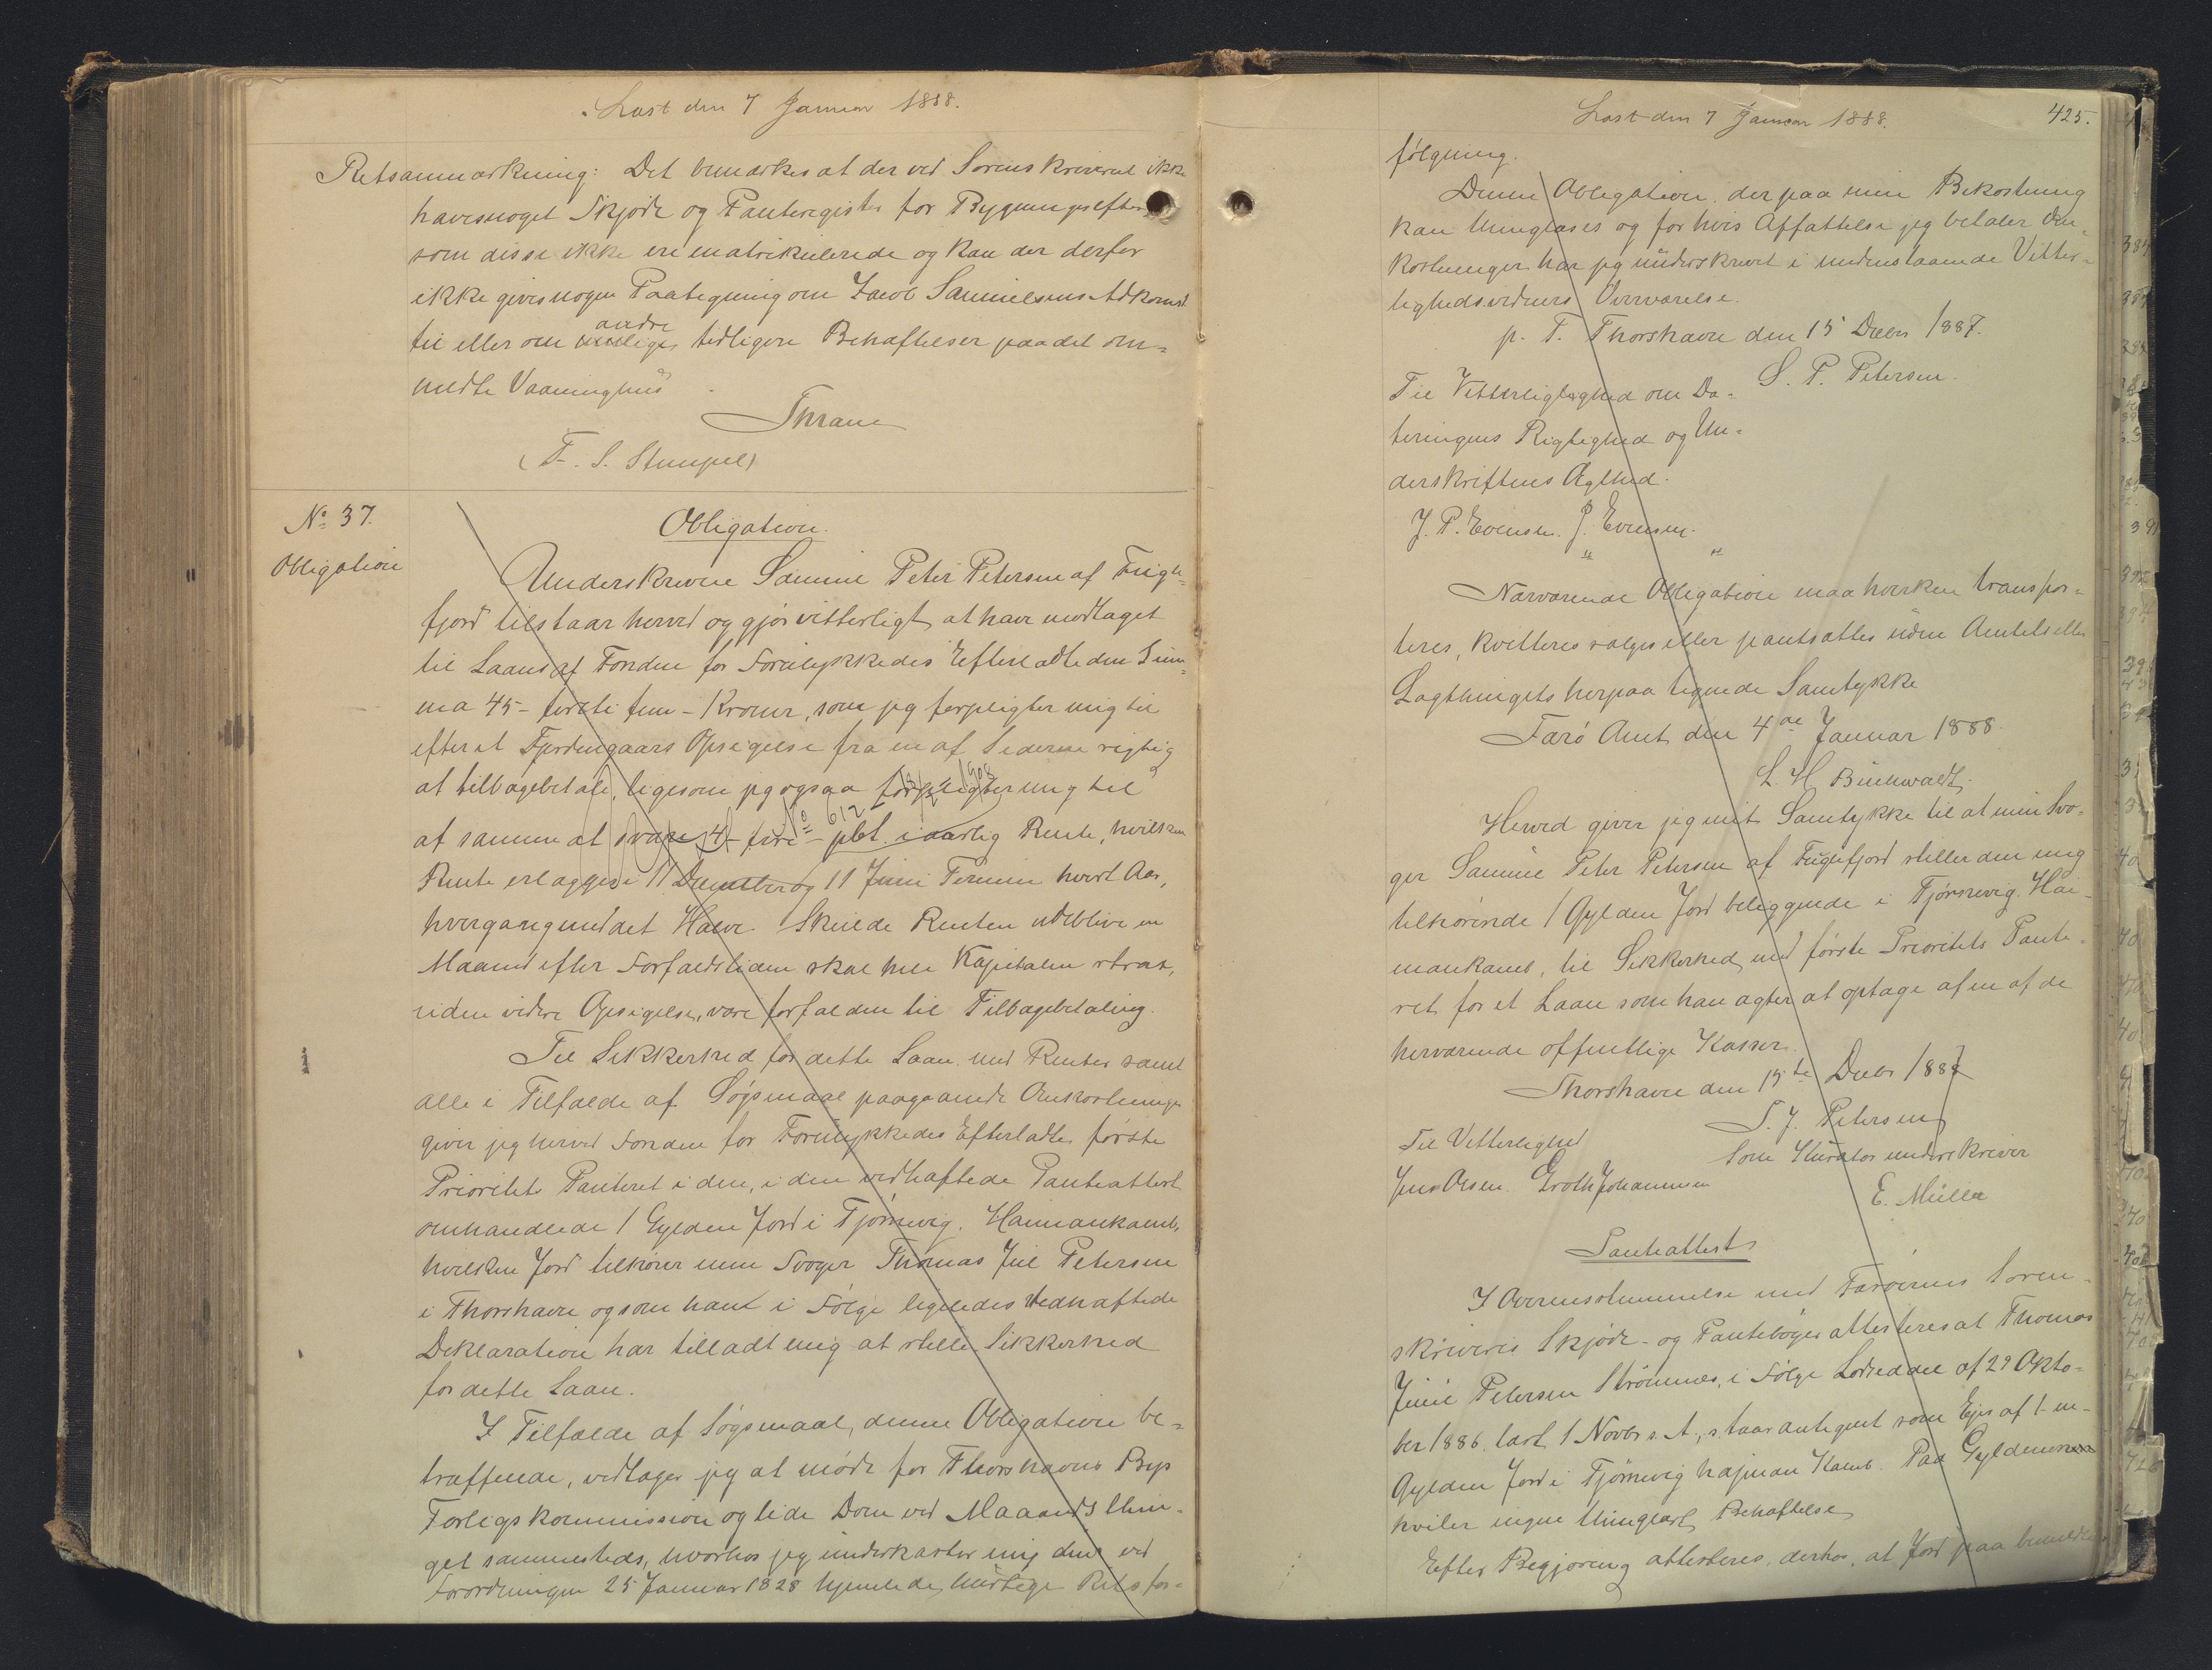 Læst den 7 Januar 1888.
Retsanmærkning: Det bemærkes at der ved Sorenskriveriet ikke
haves noget Skjøde og Panteregister for Bygninger efter
som disse ikke ere matrikulerede og kan der derfor
ikke gives nogen Paategning om Jacob Samuelsens Adkomst
til eller om andre tidligere Behæftelser paa det om=
meldte Vaaningshus.
Thrane
(T. S. Stempel)
No 37.
Obligation
Obligation.
Underskrevne Samuel Peter Petersen af Fugle=
fjord tilstaar herved og gjør vitterligt at have modtaget
til Laans af Fonden for Forulykkedes Efterladte den Sum=
ma 45 - firti fem - Kroner, som jeg forpligter mig til
efter et Fjerdingaars Opsigelse fra en af Siderne rigtig
at tilbagebetale, ligesom jeg ogsaa forpligter mig til
No 612
af samme at svare 4 - fire - pCt. i aarlig Rente, hvilken
Rente erlægges i 11 December og 11 Juni Termin hvert Aar,
hver gang med det Halve. Skulde Renten udeblive en
Maaned efter Forfaldstiden skal hele Kapitalen strax,
uden videre Opsigelse, være forfalden til Tilbagebetaling.
Til Sikkerhed for dette Laan med Renter samt
alle i Tilfælde af Søgsmaal paagaaende Omkostninger
giver jeg herved Fonden for Forulykkedes Efterladte første
Prioritets Panteret i den, i den vedhæftede Panteattest
omhandlede 1 Gylden Jord i Tjørnevig, Haimankamb,
hvilken Jord tilhører min Svoger Thomas Juul Petersen
i Thorshavn og som han i Følge ligeledes vedhæftede
Deklaration har tilladt mig at stille Sikkerhed
for dette Laan.
I Tilfælde af Søgsmaal, denne Obligation be=
træffende, vedtager jeg at møde for Thorshavns Byes
Forligskommission og lide Dom ved Maanedsthin=
get sammesteds, hvorhos jeg underkaster mig den ved
Forordningen 25 Januar 1828 hjemlede hurtige Rets for=
Læst den 7 Januar 1888.
425.
følgning.
Denne Obligation, der paa min Bekostning
kan thinglæses og for hvis Affattelse jeg betaler Om=
kostninger har jeg underskrevet i undenstaaende Vitter=
lighedsvidners Overværelse.
p. T. Thorshavn den 15 Decbr 1887.
S. P. Petersen.
Til Vitterlighed om Da=
teringens Rigtighed og Un=
derskriftens Ægthed.
J. P. Evensen. J. Evensen.
Nærværende Obligation maa hverken transpor=
teres, kvitteres sælges eller pantsættes uden Amtets eller
Lagthingets herpaa tegnede Samtykke
Færø Amt den 4de Januar 1888.
L. H. Buchwaldt.
Herved giver jeg mit Samtykke til at min Svo=
ger Samuel Peter Petersen af Fuglefjord stiller den mig
tilhørende 1 Gylden Jord beliggende i Tjørnevig, Hai=
mankamb, til Sikkerhed med første Prioritets Pante=
ret for et Laan som han agter at optage af en af de
herværende offentlige Kasser.
Thorshavn den 15te Decbr 1887
T. J. Petersen
Til Vitterlighed
Som Kurator underskriver
Jens Olsen. Johannesen
E. Müller
Panteattest
I Overensstemmelse med Færøernes Soren=
skriveries Skjøde- og Pantebøger attesteres at Thomas
Juul Petersen Strømnes, i Følge Lodseddel af 29 Okto=
ber 1886, læst 1 Novbr s. A., staar antegnet som Ejer af 1 en
Gylden Jord i Tjørnevig hajman Kamb. Paa Gylden
hviler ingen thinglæst Behæftelse
Efter Begjæring attesteres, derhos, at Jord paa bemeldte